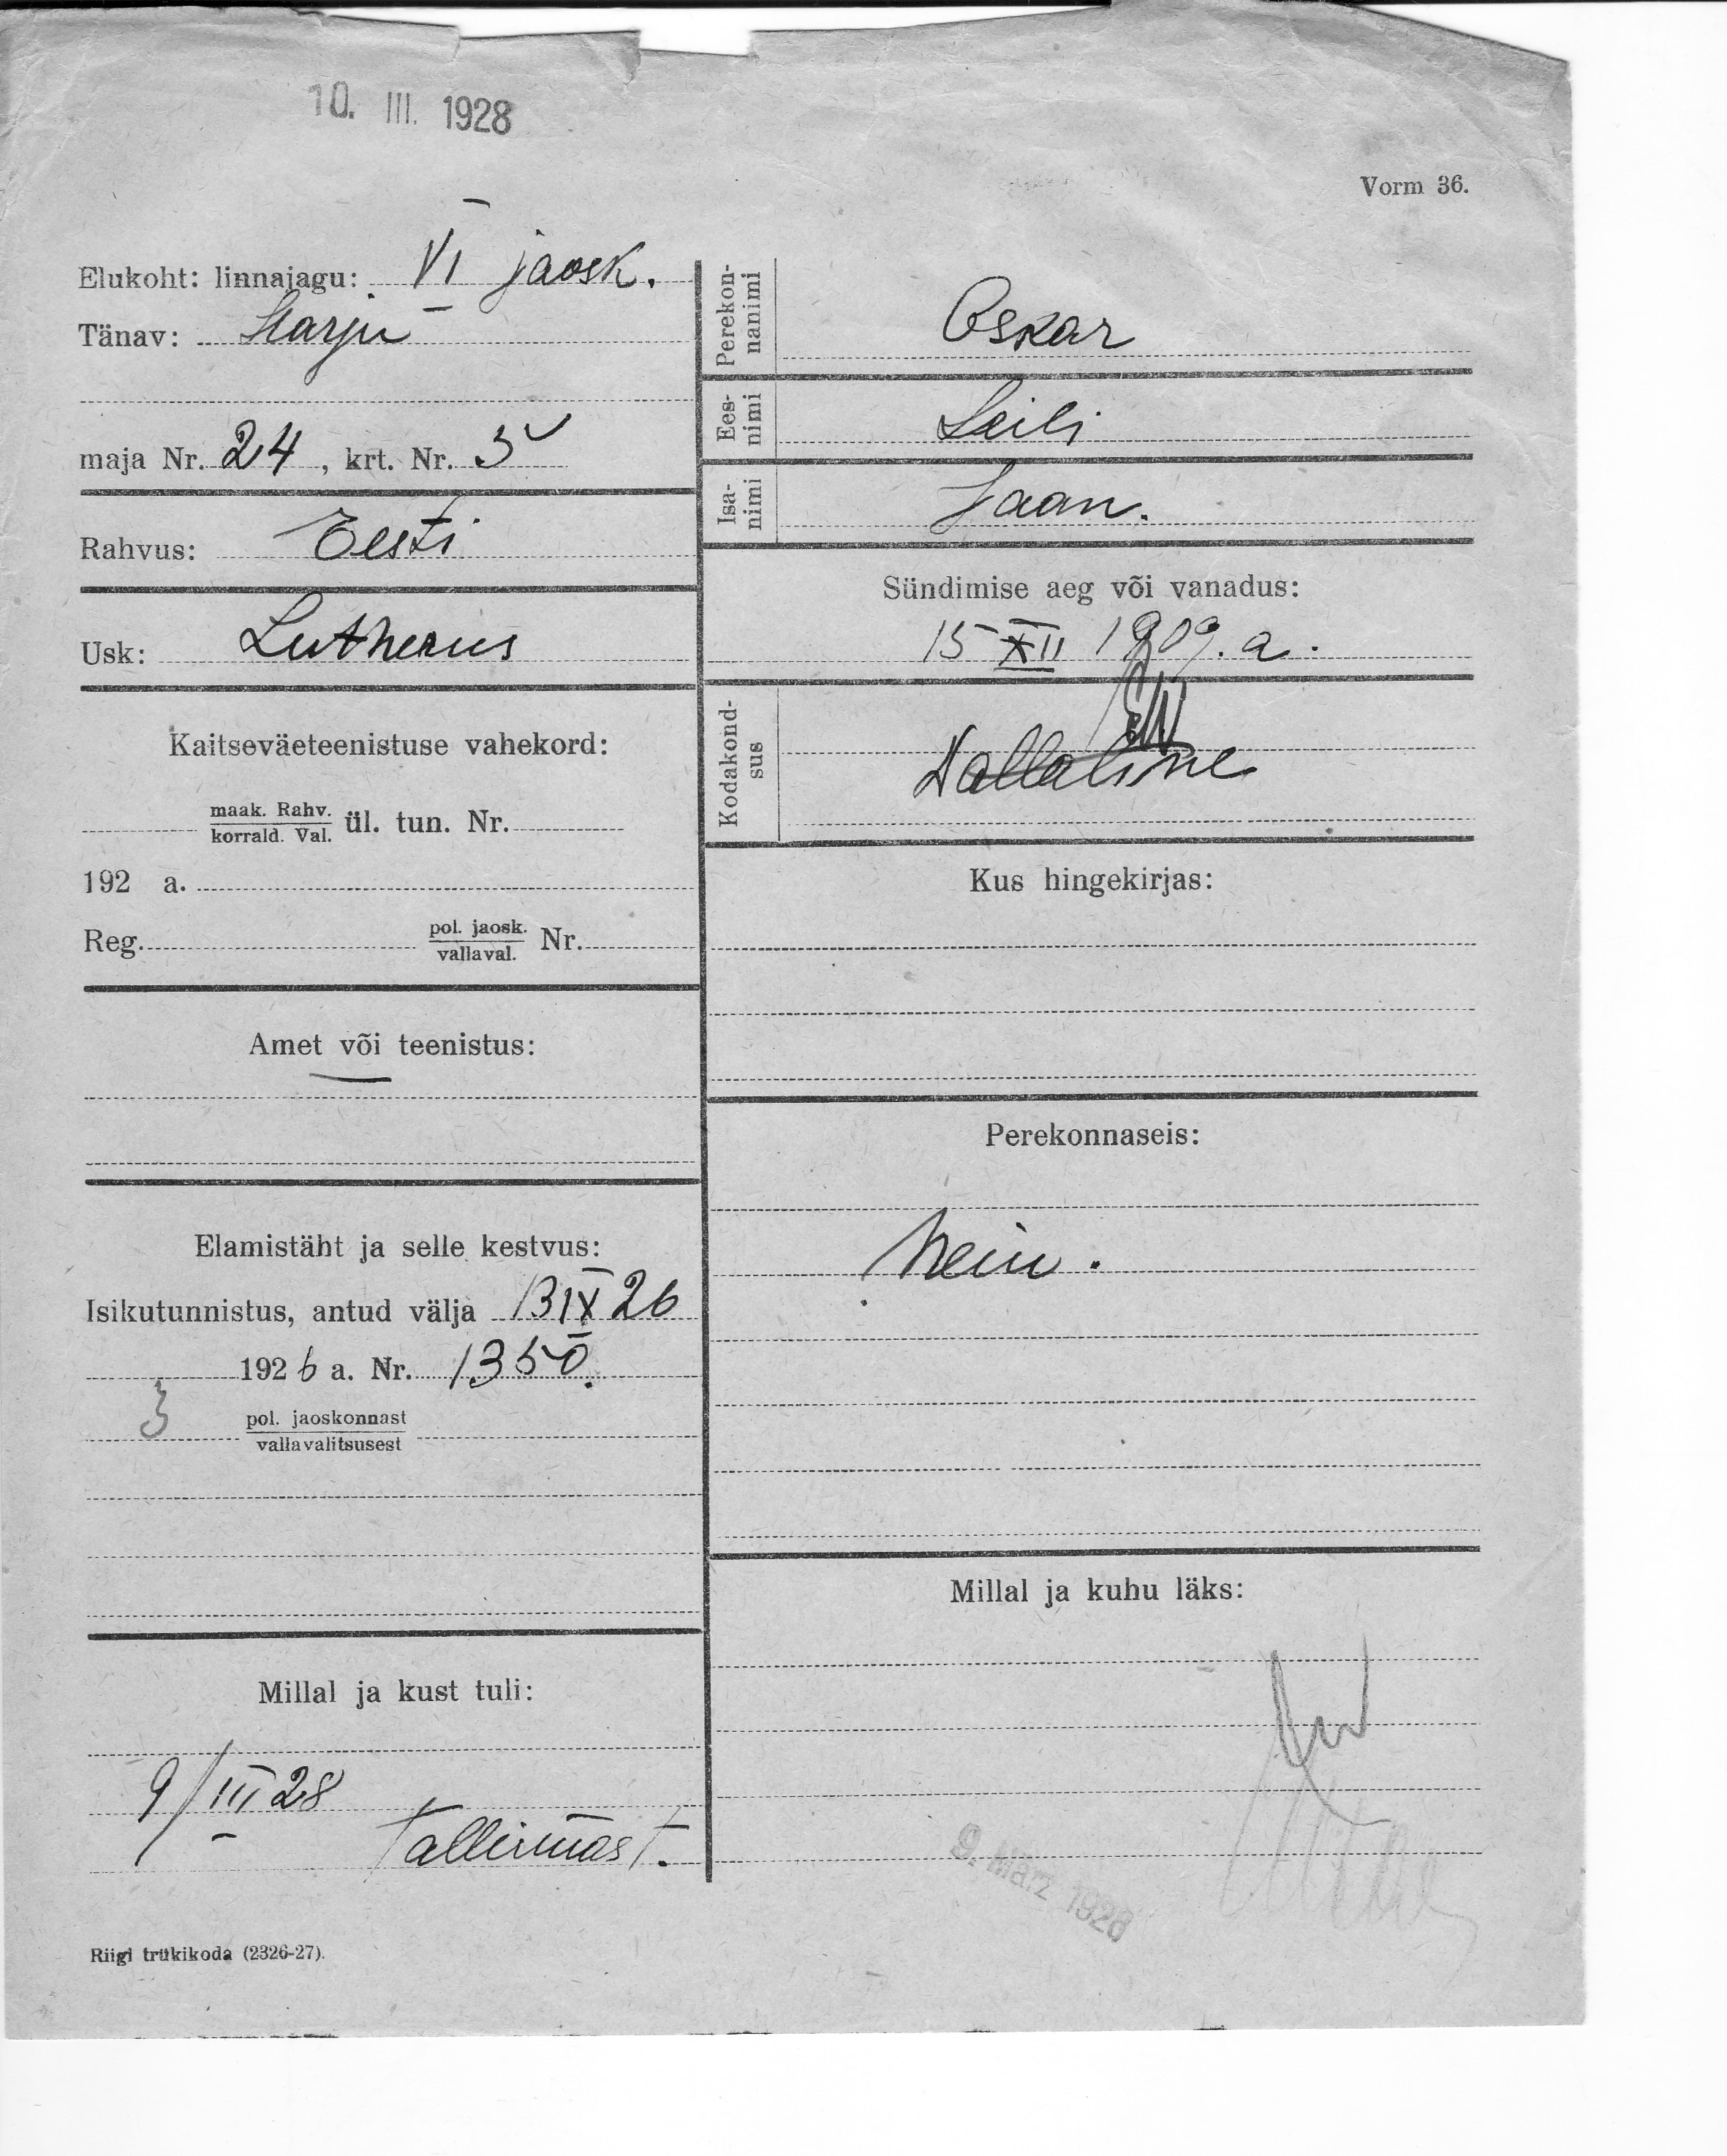 10. III. 1928
Vorm 36.
Elukoht: linnajagu: VI jaosk.
Tänav: Harju
maja Nr. 24, krt. Nr. 5
Rahvus: Eesti
Usk: Lutherius
Kaitseväeteenistuse vahekord:
maak. Rahv.
korrald. Val. ül. tun. Nr.
192 a.
Reg. pol. jaosk. Nr.
vallaval.
Amet või teenistus:
—
Elamistäht ja selle kestvus:
Isikutunnistus, antud välja 13 IX 26
1926 a. Nr. 1350.
3 pol. jaoskonnast
vallavalitsusest
Millal ja kust tuli:
9/III 28
Tallinnast.
Riigi trükikoda (2326-27).
Perekon-
nanimi
Oskar
Ees-
nimi
Leili
Isa-
nimi
Jaan.
Sündimise aeg või vanadus:
15 XII 1909. a.
Kodakond-
sus
Kus hingekirjas:
Perekonnaseis:
Neiu.
Millal ja kuhu läks:
9. März 1928